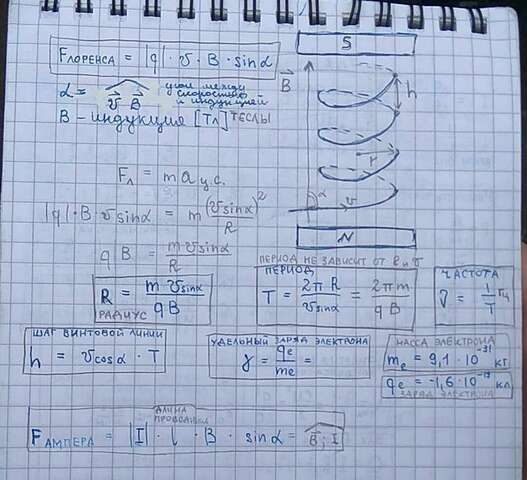 Fлоренса = |q| · v · B · sinα
S
α = v⃗ B⃗ угол между скоростью и индукцией
B⃗
h
B - индукция [Тл] ТЕСЛЫ
r
Fл = m aц.с.
α
v
|q| · B v sinα = m (v sinα)² / R
N
q B = m v sinα / R
ПЕРИОД НЕ ЗАВИСИТ ОТ R и v
R = m v sinα / q B
РАДИУС
ПЕРИОД
T = 2π R / v sinα = 2π m / q B
ЧАСТОТА
ν = 1 / T Гц
ШАГ ВИНТОВОЙ ЛИНИИ
h = v cosα · T
УДЕЛЬНЫЙ ЗАРЯД ЭЛЕКТРОНА
γ = qe / me =
МАССА ЭЛЕКТРОНА
me = 9,1 · 10⁻³¹ кг
qe = -1,6 · 10⁻¹⁹ кл
ЗАРЯД ЭЛЕКТРОНА
ДЛИНА ПРОВОДНИКА
FАМПЕРА = |I| · l · B · sinα = B⃗; I